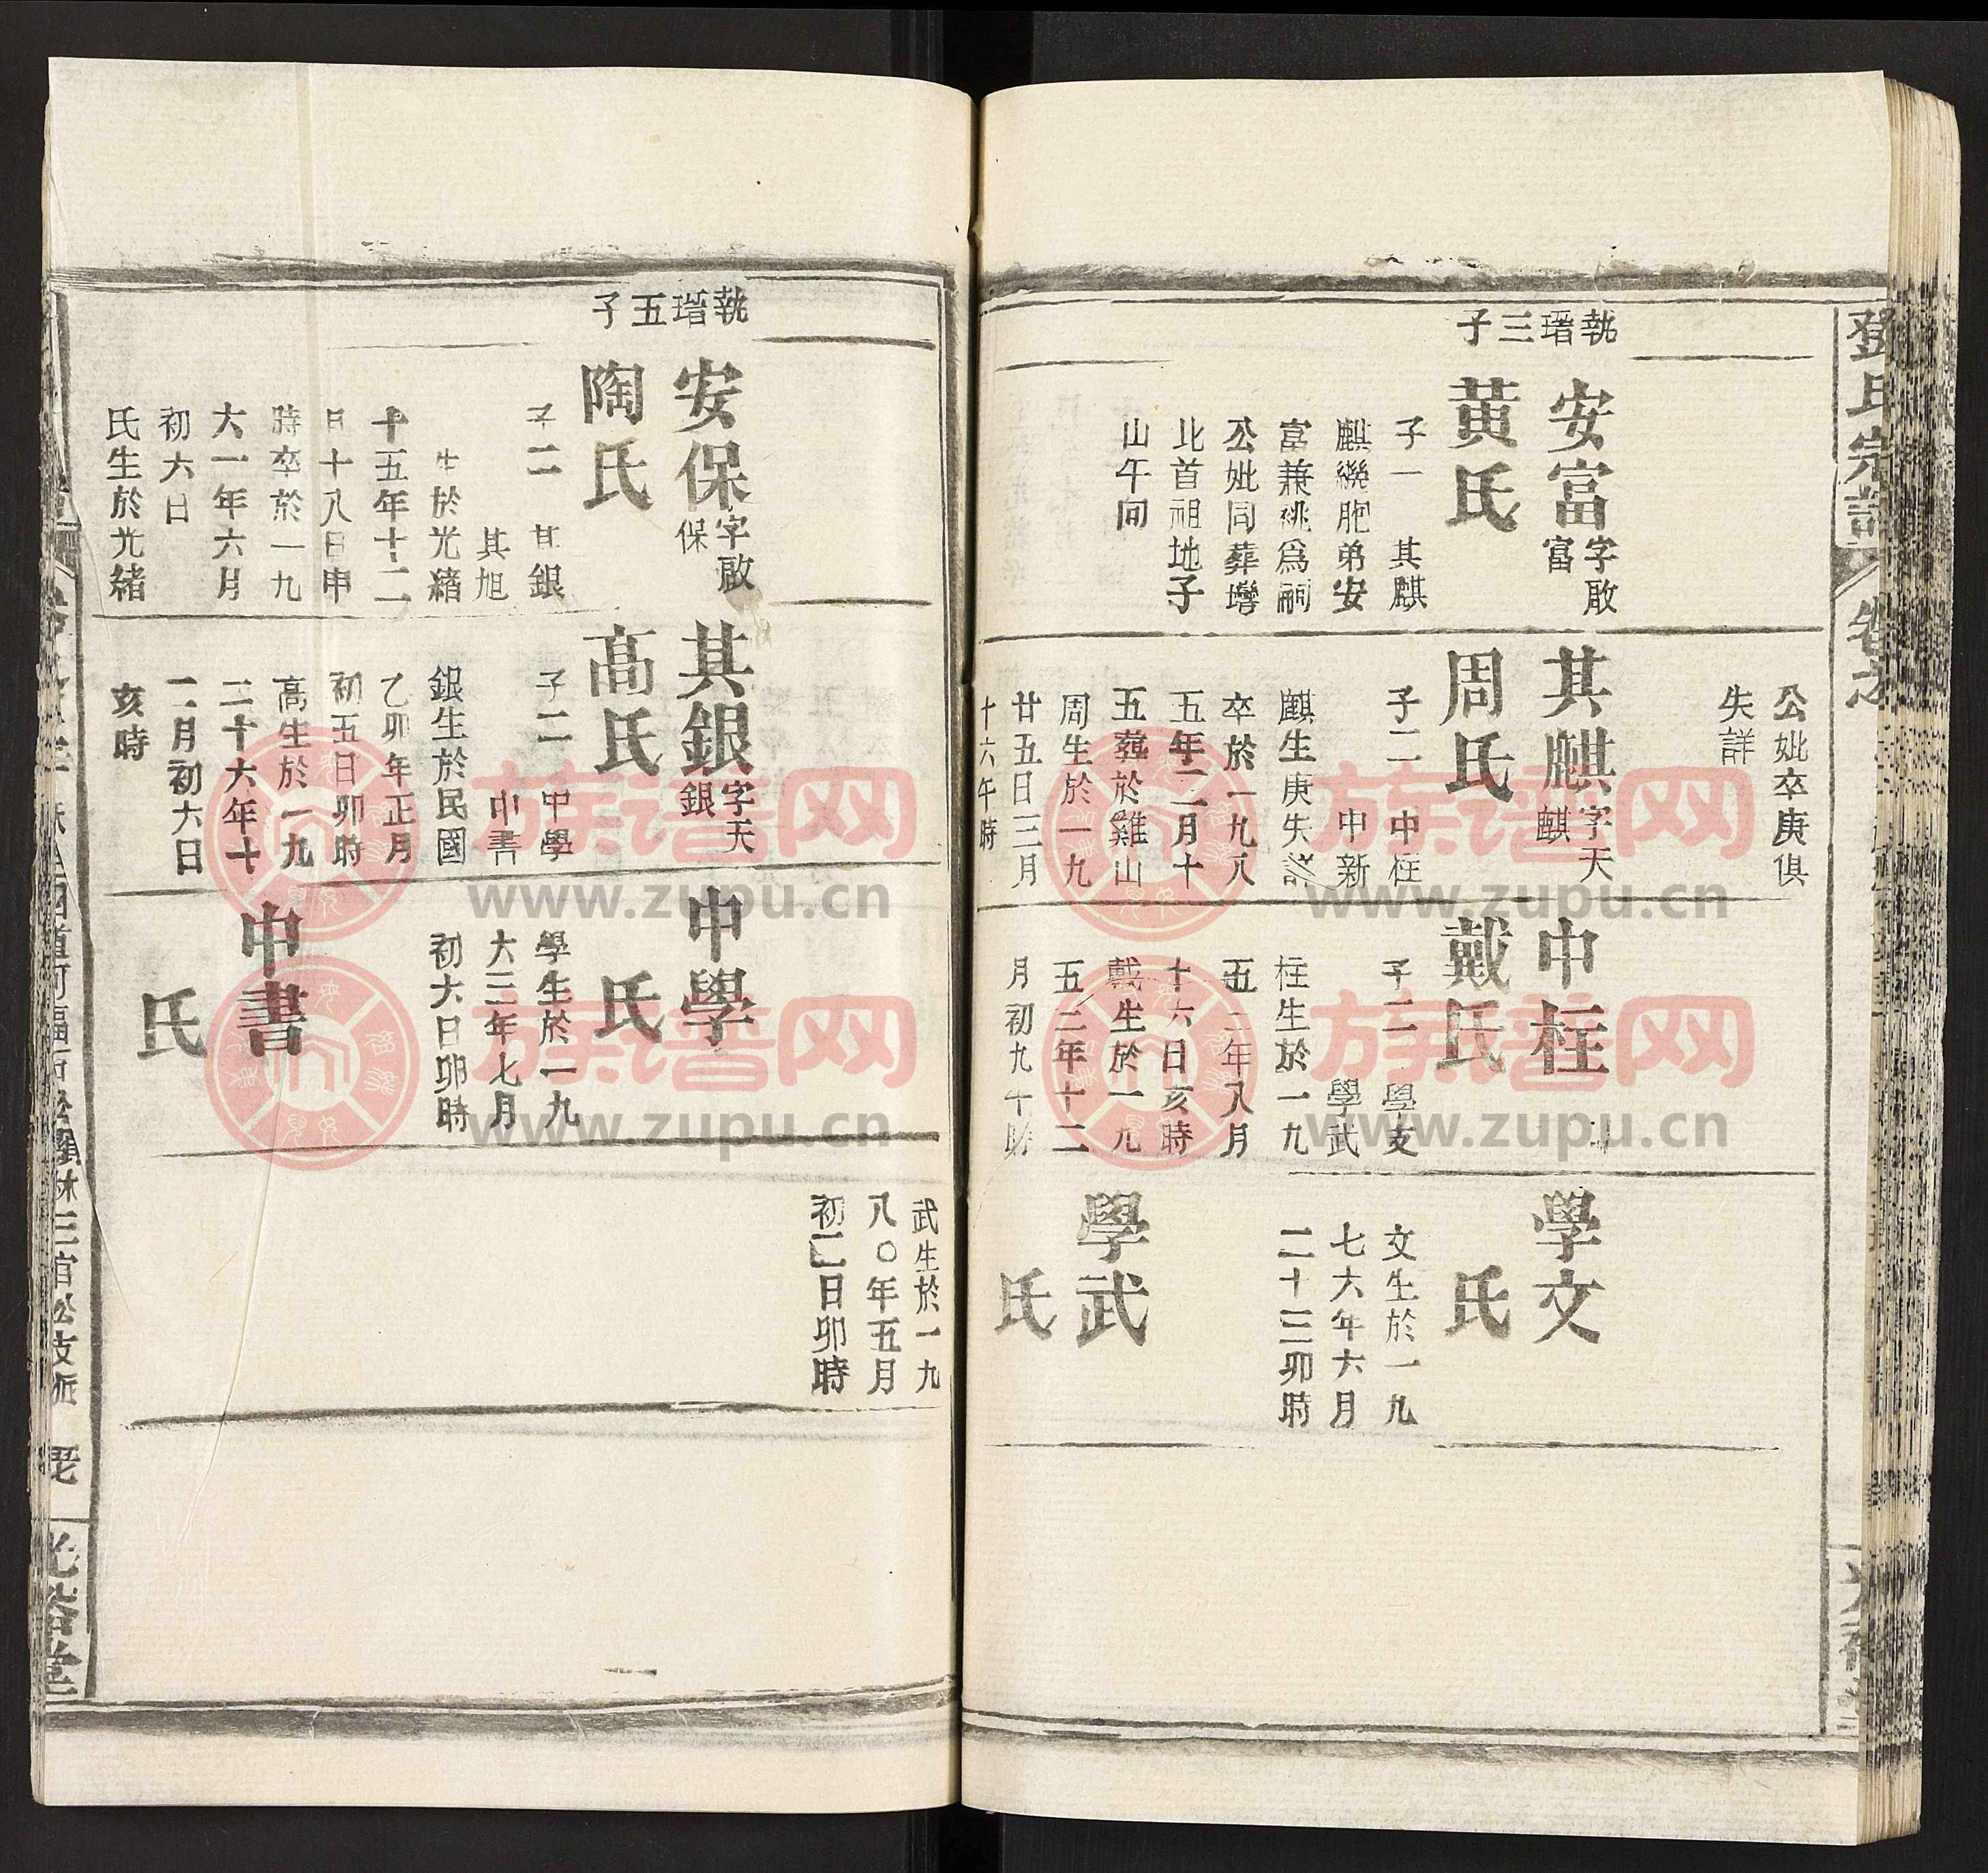 鄧氏宗譜
公妣卒庚俱
失詳
執瑨三子
安富
字啟
富
黃氏
子一 其麒
麒繼胞弟安
富兼祧為嗣
公妣同葬塆
北首祖地子
山午向
其麒
字天
麒
周氏
子二 中柱
中新
麒生庚失詳
卒於一九八
五年二月十
五葬於雞山
周生於一九
廿五日三月
十六午時
中柱
戴氏
子二 學文
學武
柱生於一九
五二年八月
十六日亥時
戴生於一九
五二年十二
月初九午時
學文
氏
文生於一九
七六年六月
二十三卯時
學武
氏
執瑨五子
安保
字啟
保
陶氏
子二 其銀
其旭
生於光緒
十五年十二
月十八日申
時卒於一九
六一年六月
初六日
氏生於光緒
其銀
字天
銀
高氏
子二 中學
中書
銀生於民國
乙卯年正月
初五日卯時
高生於一九
二十六年十
二月初六日
亥時
中學
氏
學生於一九
六三年七月
初六日卯時
中書
氏
武生於一九
八〇年五月
初二日卯時
三官松支派
光裕堂
族谱网
www.zupu.cn
族谱网
www.zupu.cn
族谱网
www.zupu.cn
族谱网
www.zupu.cn